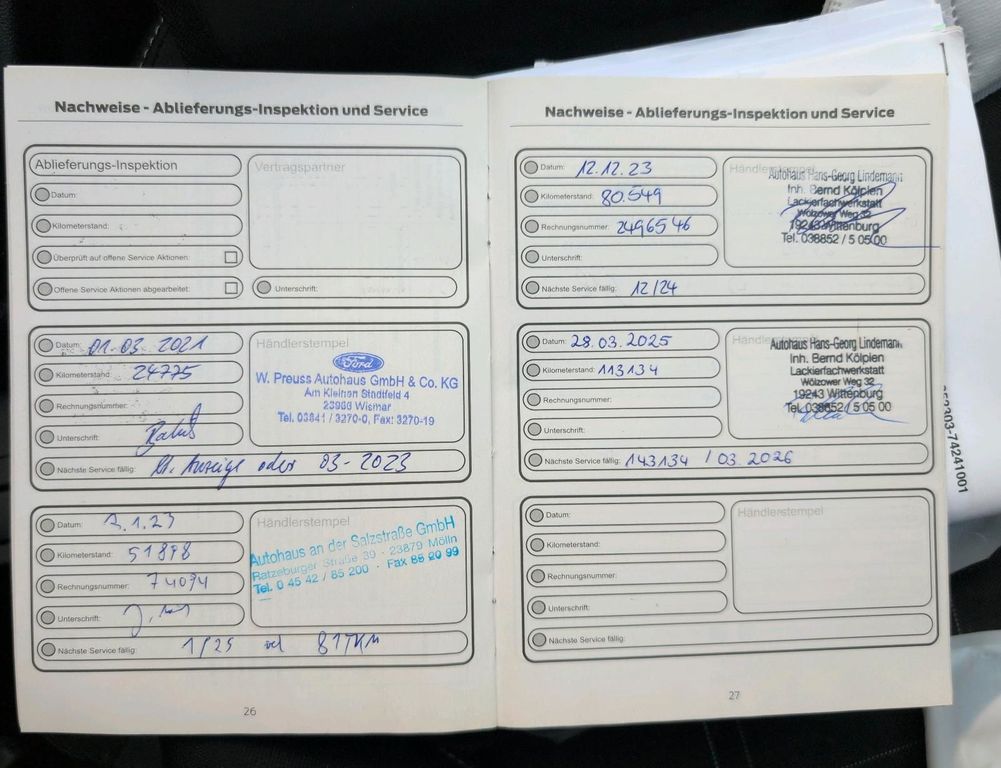 Nachweise - Ablieferungs-Inspektion und Service
Ablieferungs-Inspektion
Vertragspartner
Datum:
Kilometerstand:
Überprüft auf offene Service Aktionen:
Offene Service Aktionen abgearbeitet:
Unterschrift:
Datum: 01.03.2021
Kilometerstand: 24775
Rechnungsnummer:
Unterschrift:
Nächste Service fällig: lt. Anzeige oder 03-2023
Händlerstempel
Ford
W. Preuss Autohaus GmbH & Co. KG
Am Kleinen Stadtfeld 4
23966 Wismar
Tel. 03841 / 3270-0, Fax: 3270-19
Datum: 3.1.23
Kilometerstand: 51898
Rechnungsnummer: 74094
Unterschrift:
Nächste Service fällig: 1/25 od 81TKM
Händlerstempel
Autohaus an der Salzstraße GmbH
Ratzeburger Straße 39 · 23879 Mölln
Tel. 0 45 42 / 85 200 · Fax 86 20 99
26
Nachweise - Ablieferungs-Inspektion und Service
Datum: 12.12.23
Kilometerstand: 80.549
Rechnungsnummer: 2496546
Unterschrift:
Nächste Service fällig: 12/24
Händlerstempel
Autohaus Hans-Georg Lindemann
Inh. Bernd Kölpien
Lackierfachwerkstatt
Wölzower Weg 32
19243 Wittenburg
Tel. 038852 / 5 05 00
Datum: 28.03.2025
Kilometerstand: 113134
Rechnungsnummer:
Unterschrift:
Nächste Service fällig: 143134 / 03.2026
Autohaus Hans-Georg Lindemann
Inh. Bernd Kölpien
Lackierfachwerkstatt
Wölzower Weg 32
19243 Wittenburg
Tel. 038852 / 5 05 00
Datum:
Kilometerstand:
Rechnungsnummer:
Unterschrift:
Nächste Service fällig:
Händlerstempel
27